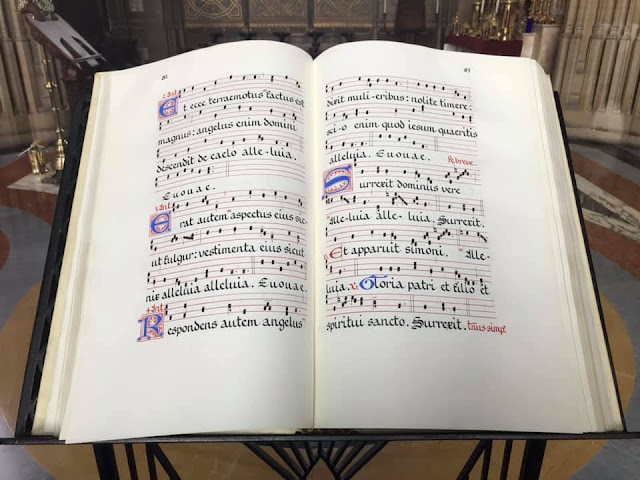 82
2 Ant
Et ecce terraemotus factus est
magnus: angelus enim domini
descendit de caelo alleluia.
Euouae.
3 Ant
erat autem aspectus eius sic
ut fulgur: vestimenta eius sicut
nix alleluia alleluia. Euouae.
4 Ant
Respondens autem angelus
83
dixit muli-eribus: nolite timere:
sci-o enim quod iesum quaeritis
alleluia. Euouae.
Re breve.
Surrexit dominus vere
Alle-luia alle- luia. Surrexit.
Et apparuit simoni. Alle-
luia. Gloria patri et filio et
spiritui sancto. Surrexit.